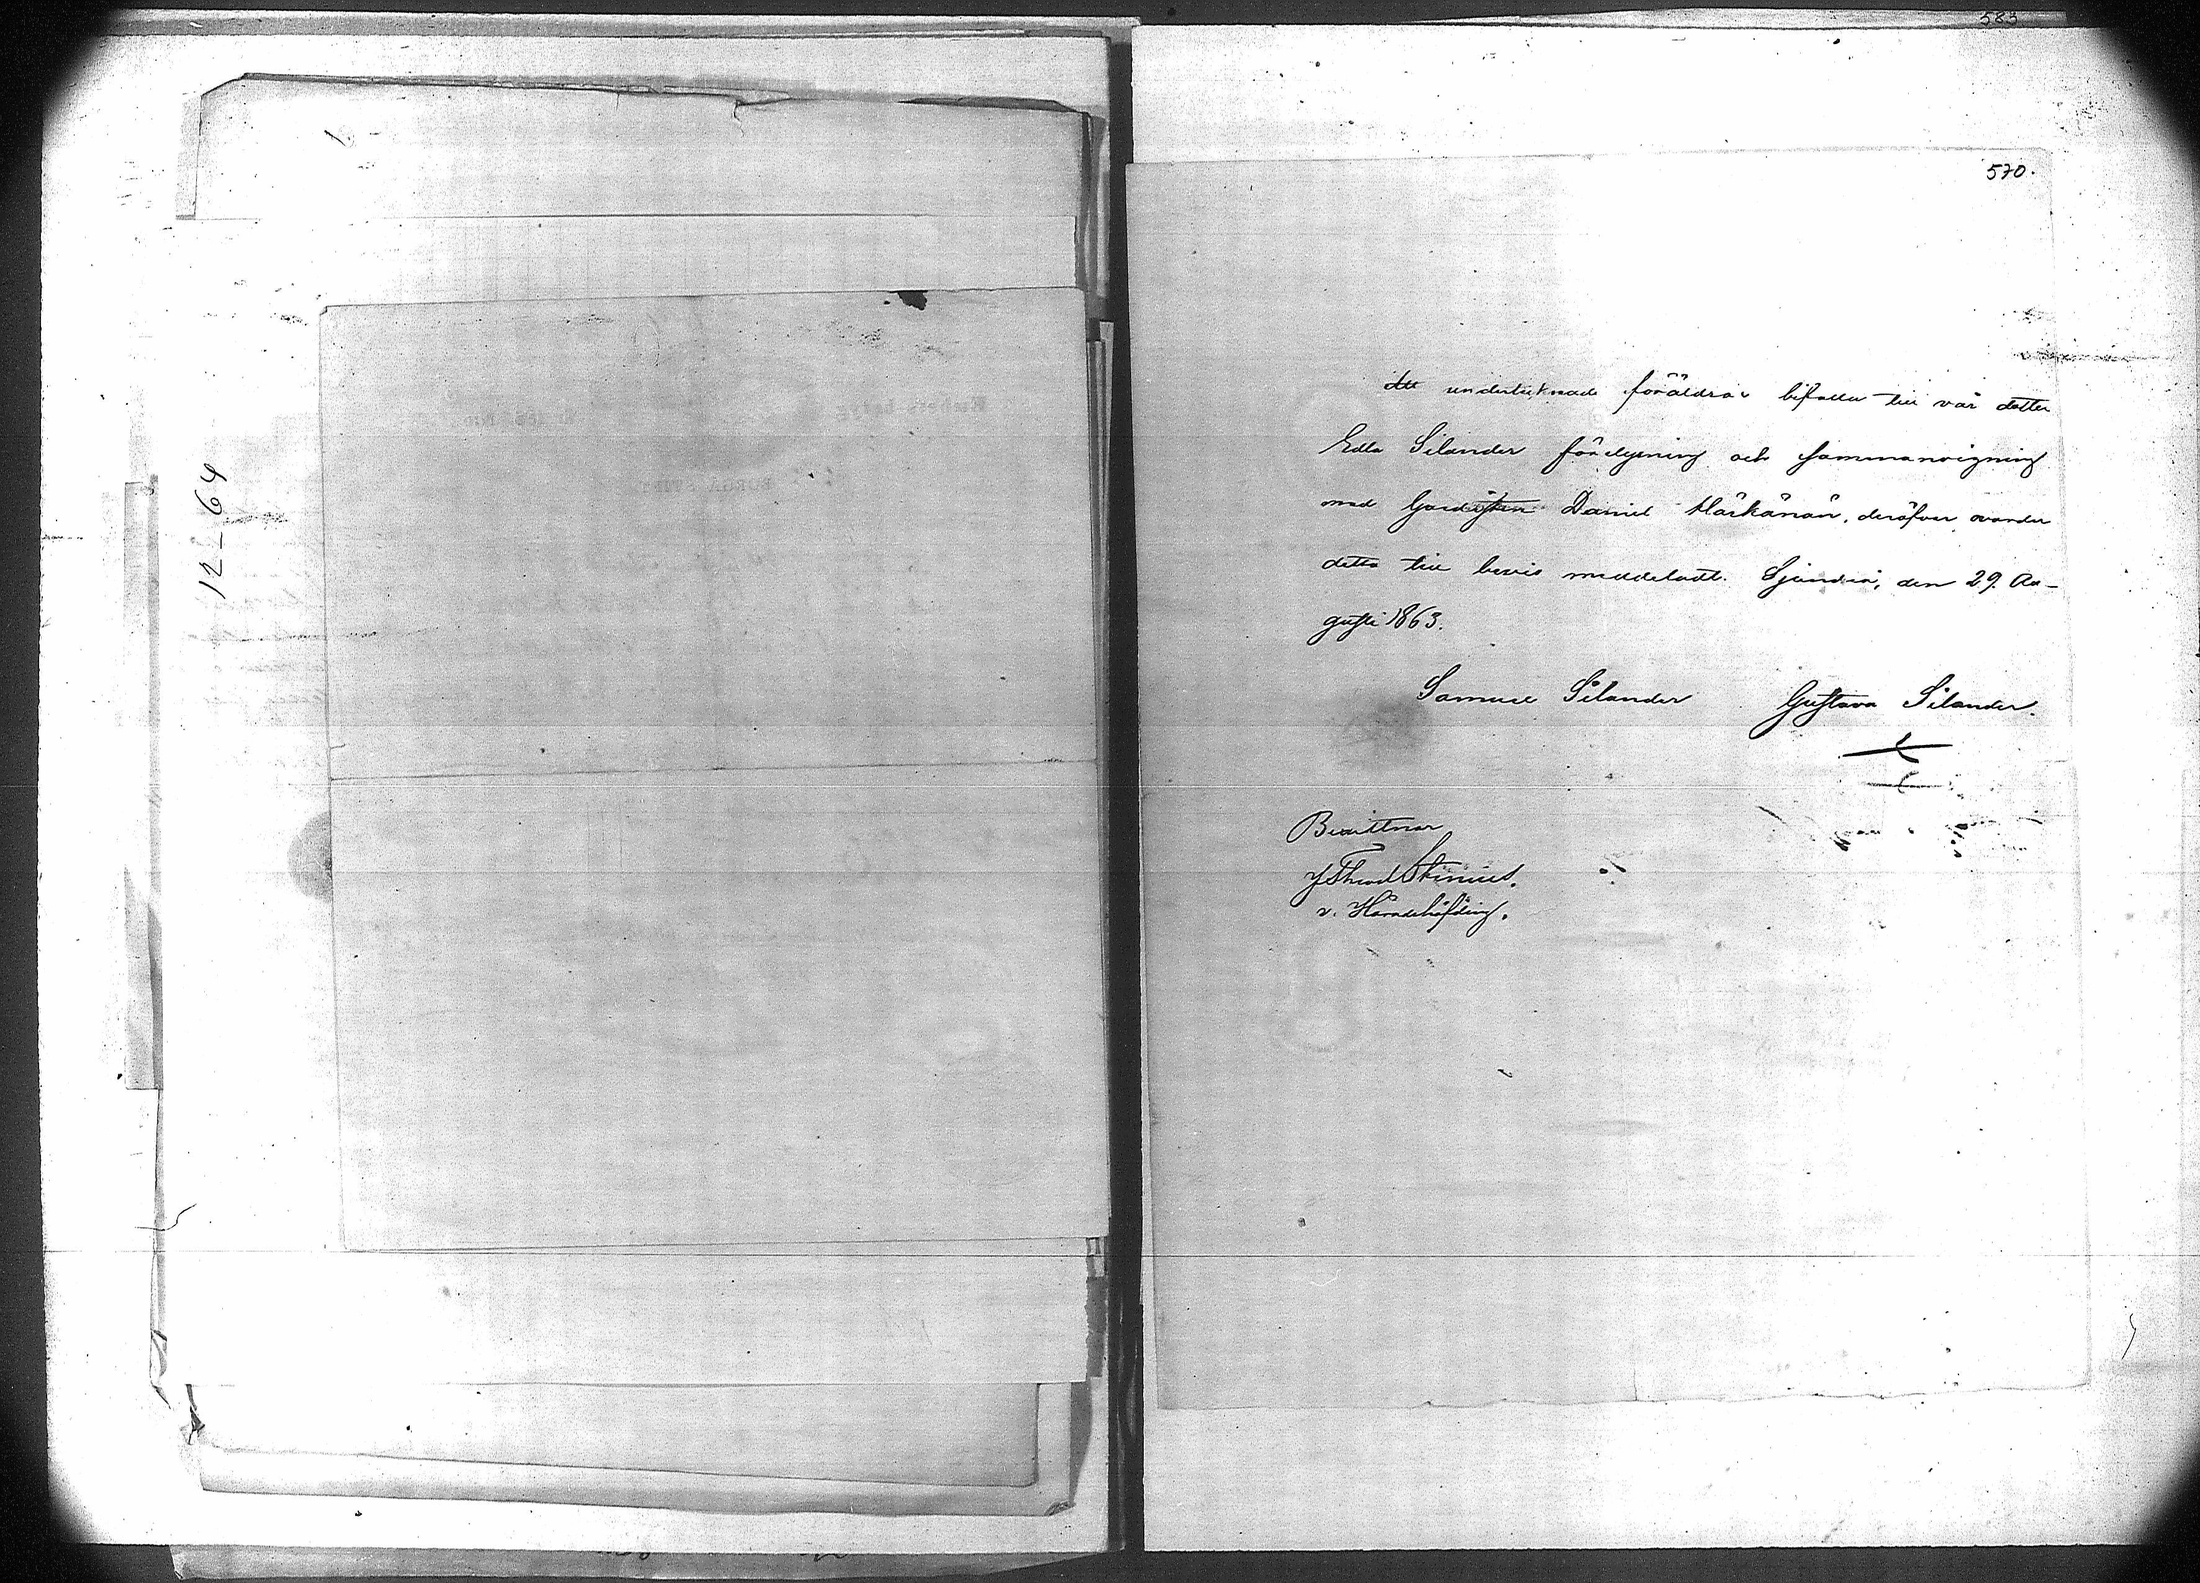 583
570.
12-64
Att undertecknade föräldrar bifalla till vår dotter
Edla Silanders förelysning och sammanvigning
med Gardisten Daniel Härkänän, deröfver varder
detta till bevis meddeladt. Sjundeå, den 29. Au-
gusti 1863.
Samuel Silander Gustava Silander.
Bevittnar
v. Häradshöfding.